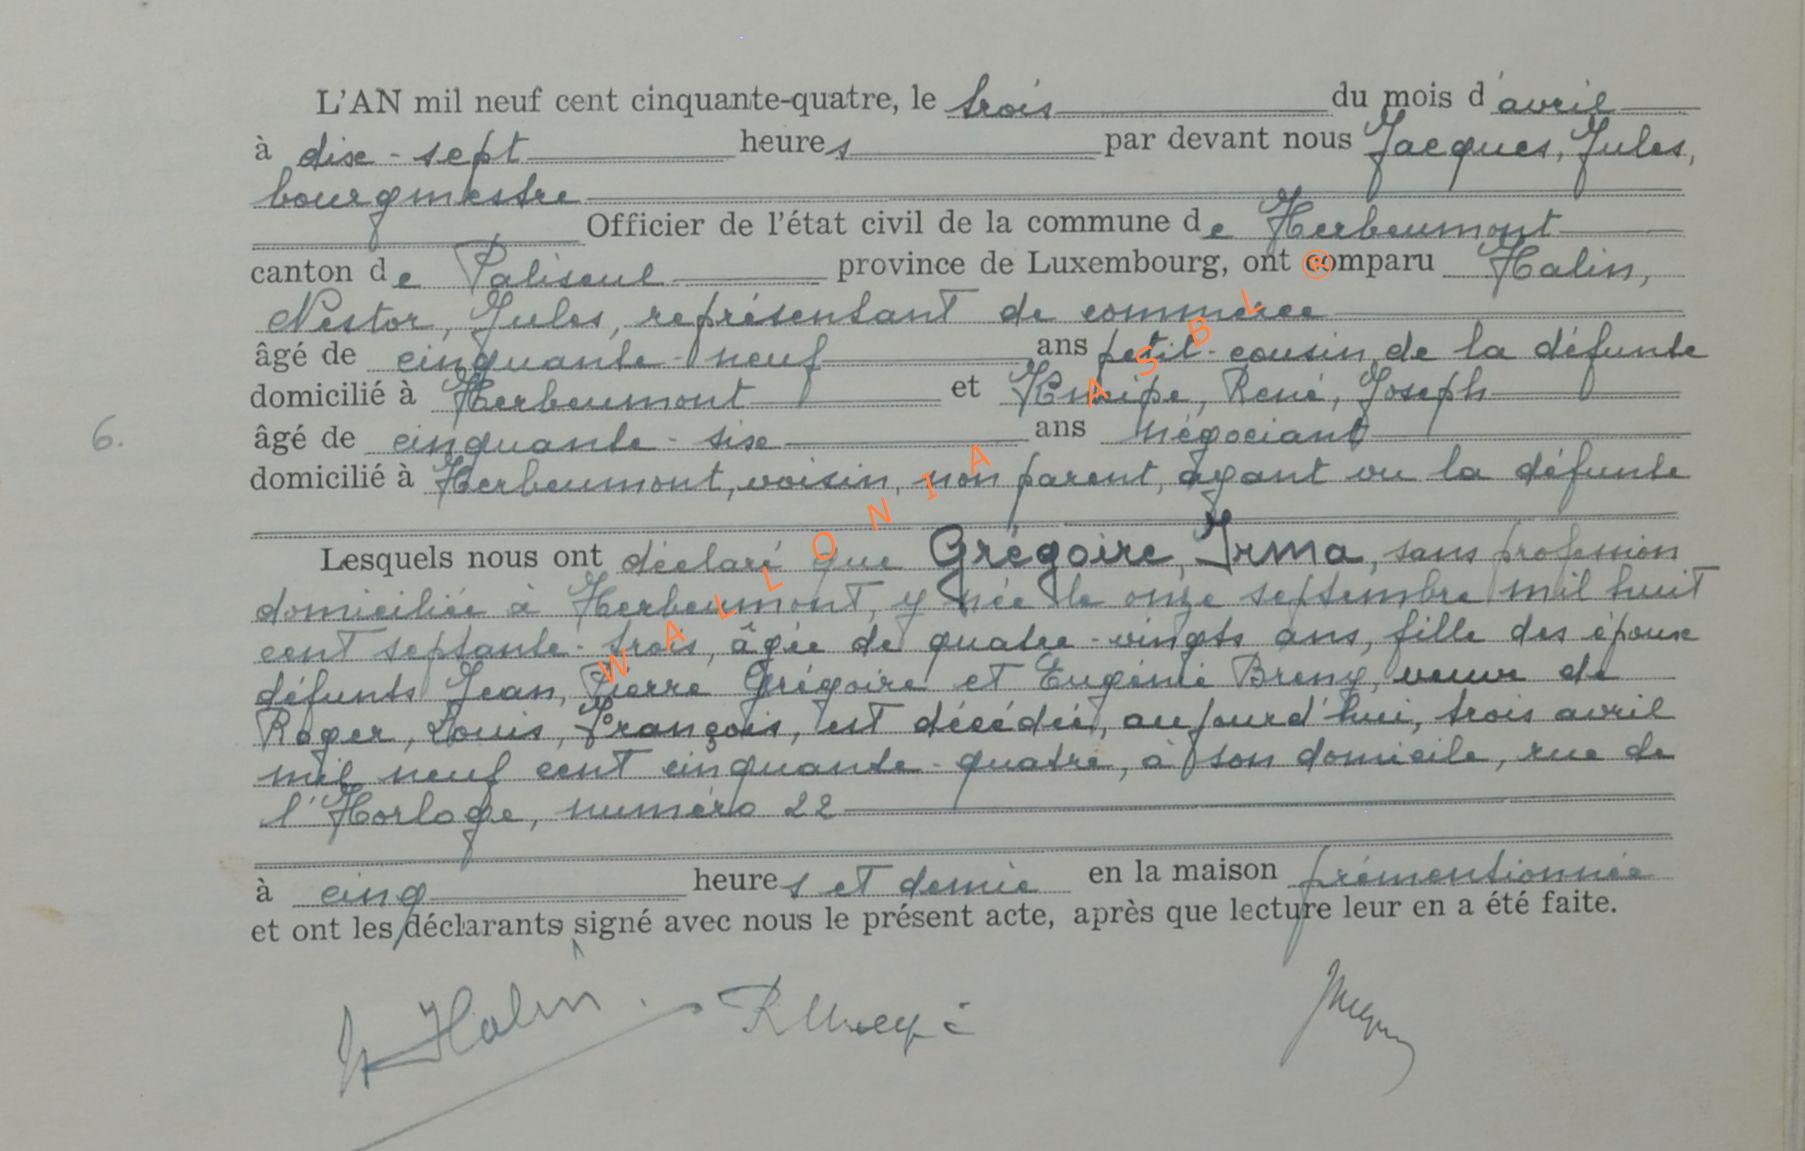 L'AN mil neuf cent cinquante-quatre, le trois du mois d'avril
à dix-sept heures par devant nous Jacques, Jules,
bourgmestre
Officier de l'état civil de la commune de Herbeumont
canton de Paliseul province de Luxembourg, ont comparu Halin,
Nestor, Jules, représentant de commerce
âgé de cinquante-neuf ans petit-cousin de la défunte
domicilié à Herbeumont et René, Joseph
6.
âgé de cinquante-six ans négociant
domicilié à Herbeumont, voisin, non parent, ayant vu la défunte
Lesquels nous ont déclaré que Grégoire, Irma, sans profession
domiciliée à Herbeumont, y née le onze septembre mil huit
cent septante-trois, âgée de quatre-vingts ans, fille des époux
défunts Jean, Pierre Grégoire et Eugénie Breny, veuve de
Roger, Louis, François, est décédée, aujourd'hui, trois avril
mil neuf cent cinquante-quatre, à son domicile, rue de
l'Horloge, numéro 22
à cinq heures et demie en la maison prémentionnée
et ont les déclarants signé avec nous le présent acte, après que lecture leur en a été faite.
Halin
WALLONIA ASBL ®